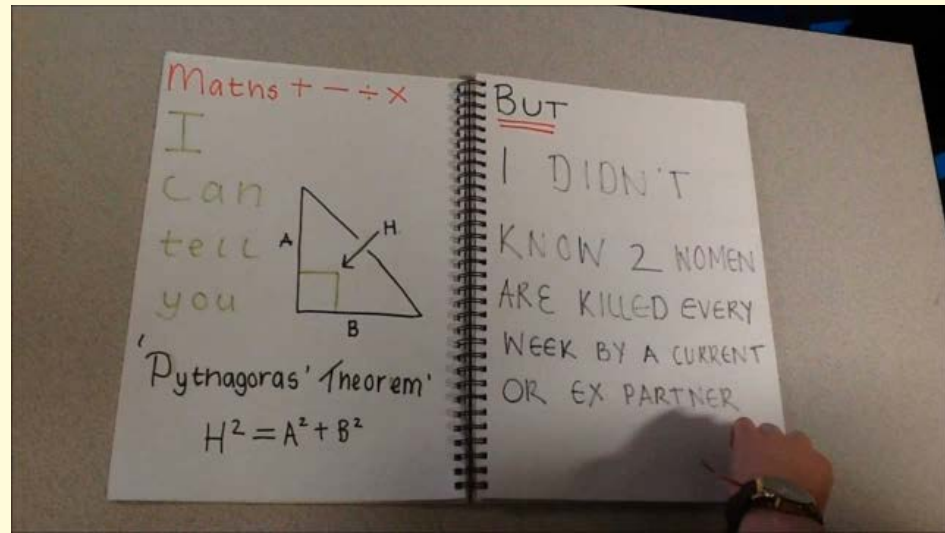 Maths + - ÷ ×
I
can
tell
you
A
H
B
'Pythagoras' Theorem'
H² = A² + B²
BUT
I DIDN'T
KNOW 2 WOMEN
ARE KILLED EVERY
WEEK BY A CURRENT
OR EX PARTNER